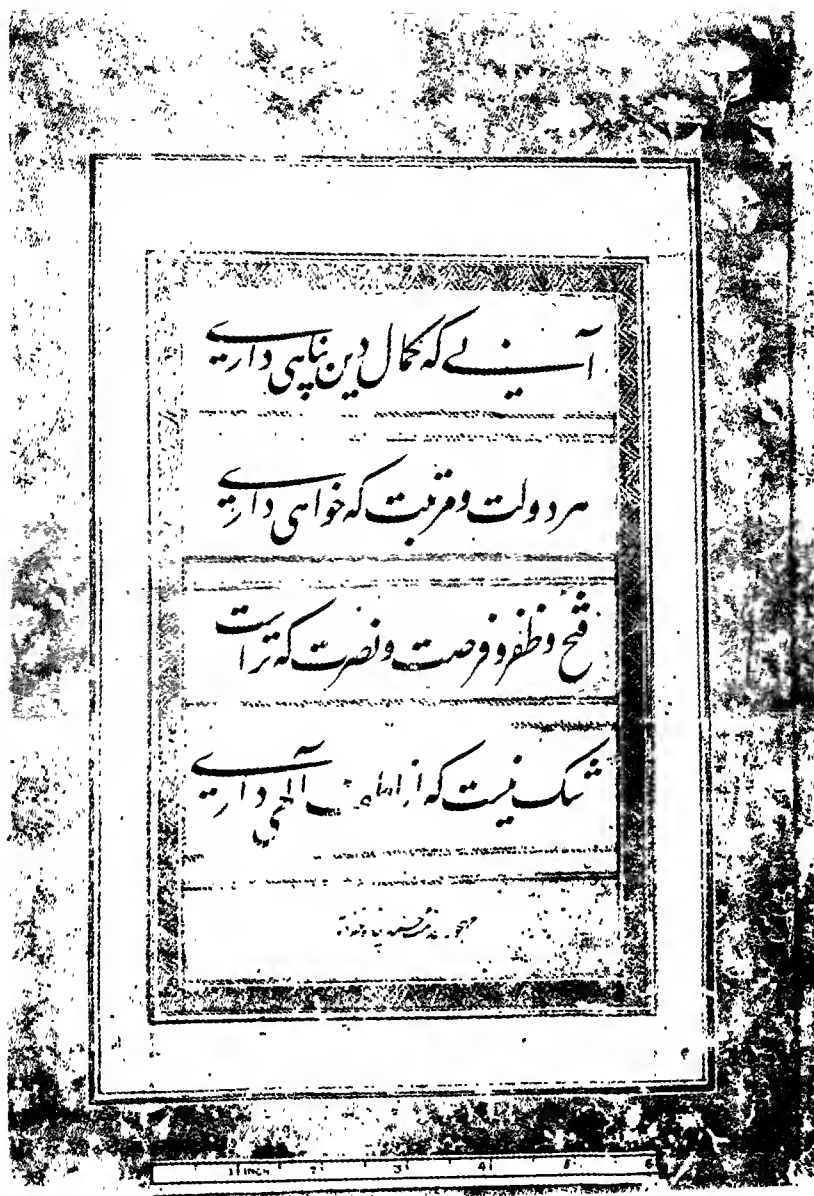 آنی که کمال دین پناهی داری
هر دولت و مرتبت که خواهی داری
فتح و ظفر و فرصت و نصرت که تراست
شک نیست که از الطاف آلهی داری
1 INCH 2 3 4 5 6